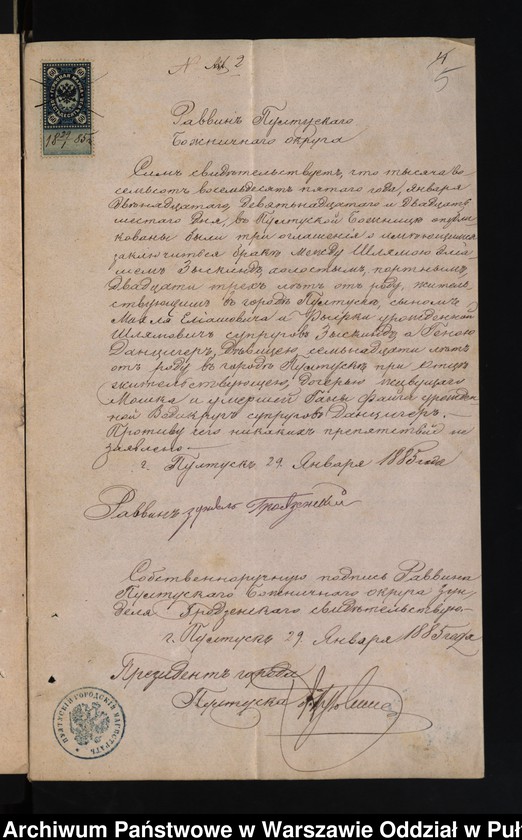 № 2
4
5
18 29/1 85
60 60
Раввинъ Пултускаго
Божничнаго округа
Симъ свидѣтельствуетъ, что тысяча во
семьсотъ восемьдесятъ пятаго года, Января
Двѣнадцатаго, Девятнадцатаго и Двадцать
шестаго Дня, въ Пултуской Божницѣ опубли
кованы были три оглашенія о имѣющемся
заключиться бракѣ между Шлямою
Зыскинд, холостымъ, портнымъ,
Двадцати трехъ лѣтъ отъ роду, житель
ствующимъ въ городѣ Пултускѣ, сыномъ
Еліашовича и Фырки урожденной
Шлямовичъ супруговъ Зыскиндъ а Геною
Данцигеръ, Дѣвицею, семьнадцати лѣтъ
отъ роду въ городѣ Пултускѣ при Отцѣ
жительствующею, дочерью живущаго
Мошка и умершей Ганы Файги урожден
ной супруговъ Данцигеръ.
Противу сего никакихъ препятствій не
заявлено.
г. Пултускъ 29. Января 1885 года
Раввинъ Гродзенскій
Собственноручную подпись Раввина
Пултускаго Божничнаго округа Зун
деля Гродзенскаго свидѣтельствую.
г. Пултускъ 29 Января 1885 года
Президентъ города
Пултуска
ПУЛТУСКІЙ ГОРОДСКІЙ МАГИСТРАТЪ
Archiwum Państwowe w Warszawie Oddział w Puł